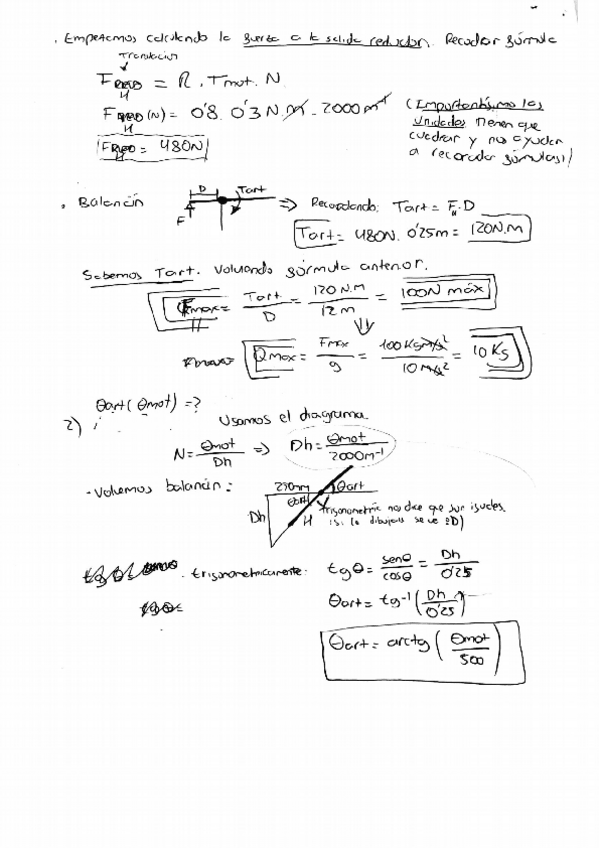 . Empezamos calculando la fuerza a la salida reductor. Recordar fórmula
Translación
F = R . Tmot . N
F (N) = 0'8 . 0'3 N.m . 2000 m⁻¹
(Importantísimo las
unidades tienen que
cuadrar y nos ayudan
a recordar fórmulas)!
= 480N
. Balancín
D Tart
F
=> Recordando: Tart = F . D
Tart = 480N . 0'25m = 120N.m
Sabemos Tart. Volviendo fórmula anterior.
Fmax = Tart / D = 120 N.m / 12 m = 100N máx
Qmax = Fmax / g = 100 Kg m/s² / 10 m/s² = 10 Kg
θart (θmot) = ?
2)
Usamos el diagrama
N = θmot / Dh => Dh = θmot / 2000m⁻¹
- Volvemos balancín:
250mm θart
θart
Dh H
trigonometría nos dice que son iguales
(si lo dibujas se ve :D)
. trigonométricamente: tgθ = senθ / cosθ = Dh / 0'25
θart = tg⁻¹ ( Dh / 0'25 )
θart = arctg ( θmot / 500 )